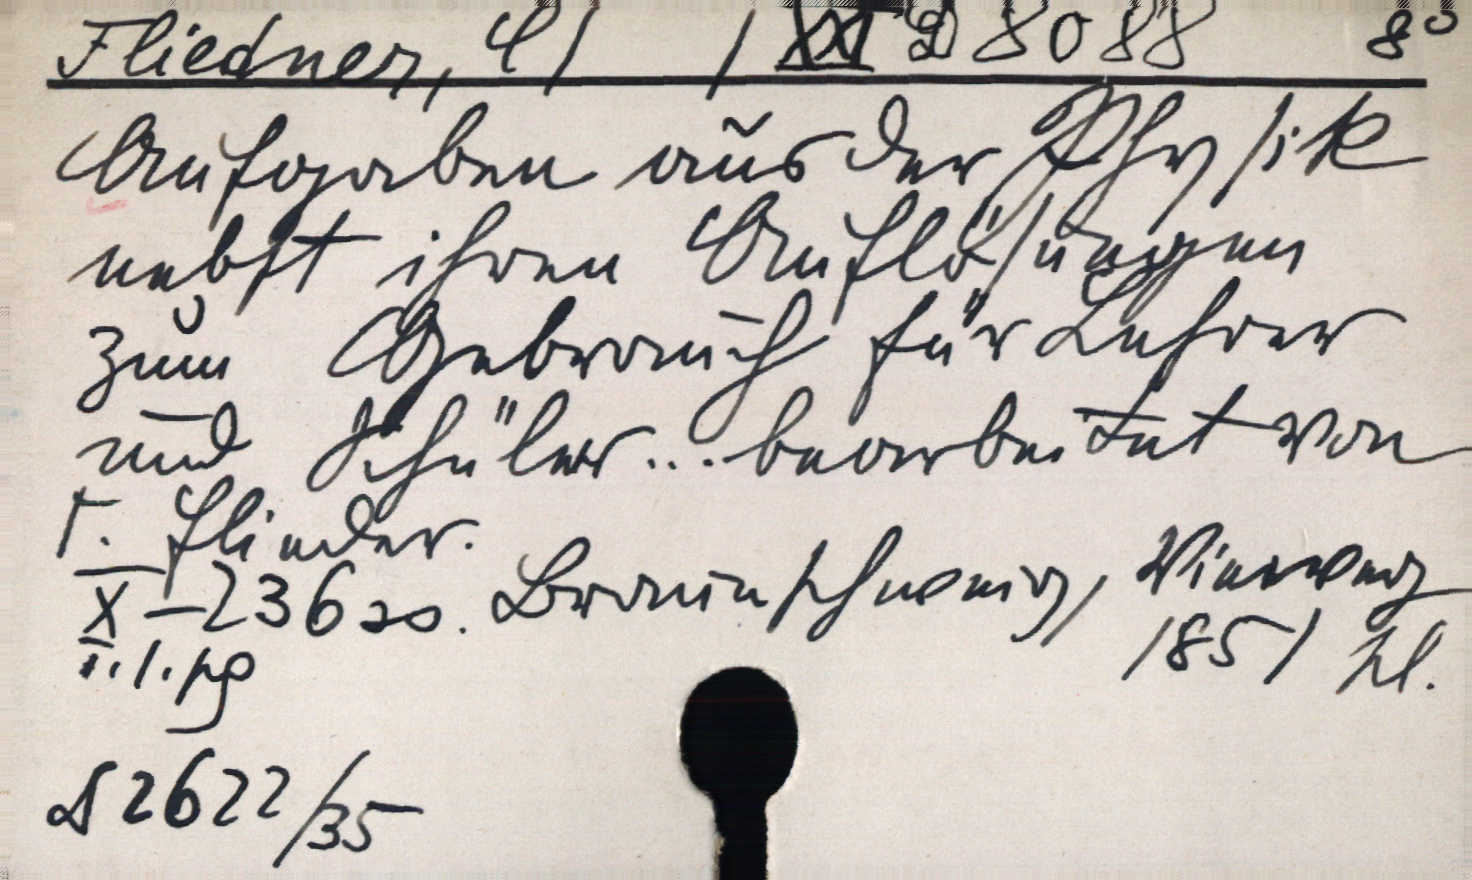 Fliedner, C/ / XXI D 8088 8°
Aufgaben aus der Physik
nebst ihren Auflösungen
zum Gebrauch für Lehrer
und Schüler... bearbeitet von
Fliedner.
X-236 Braunschweig, Vieweg
1851
S 2622/35